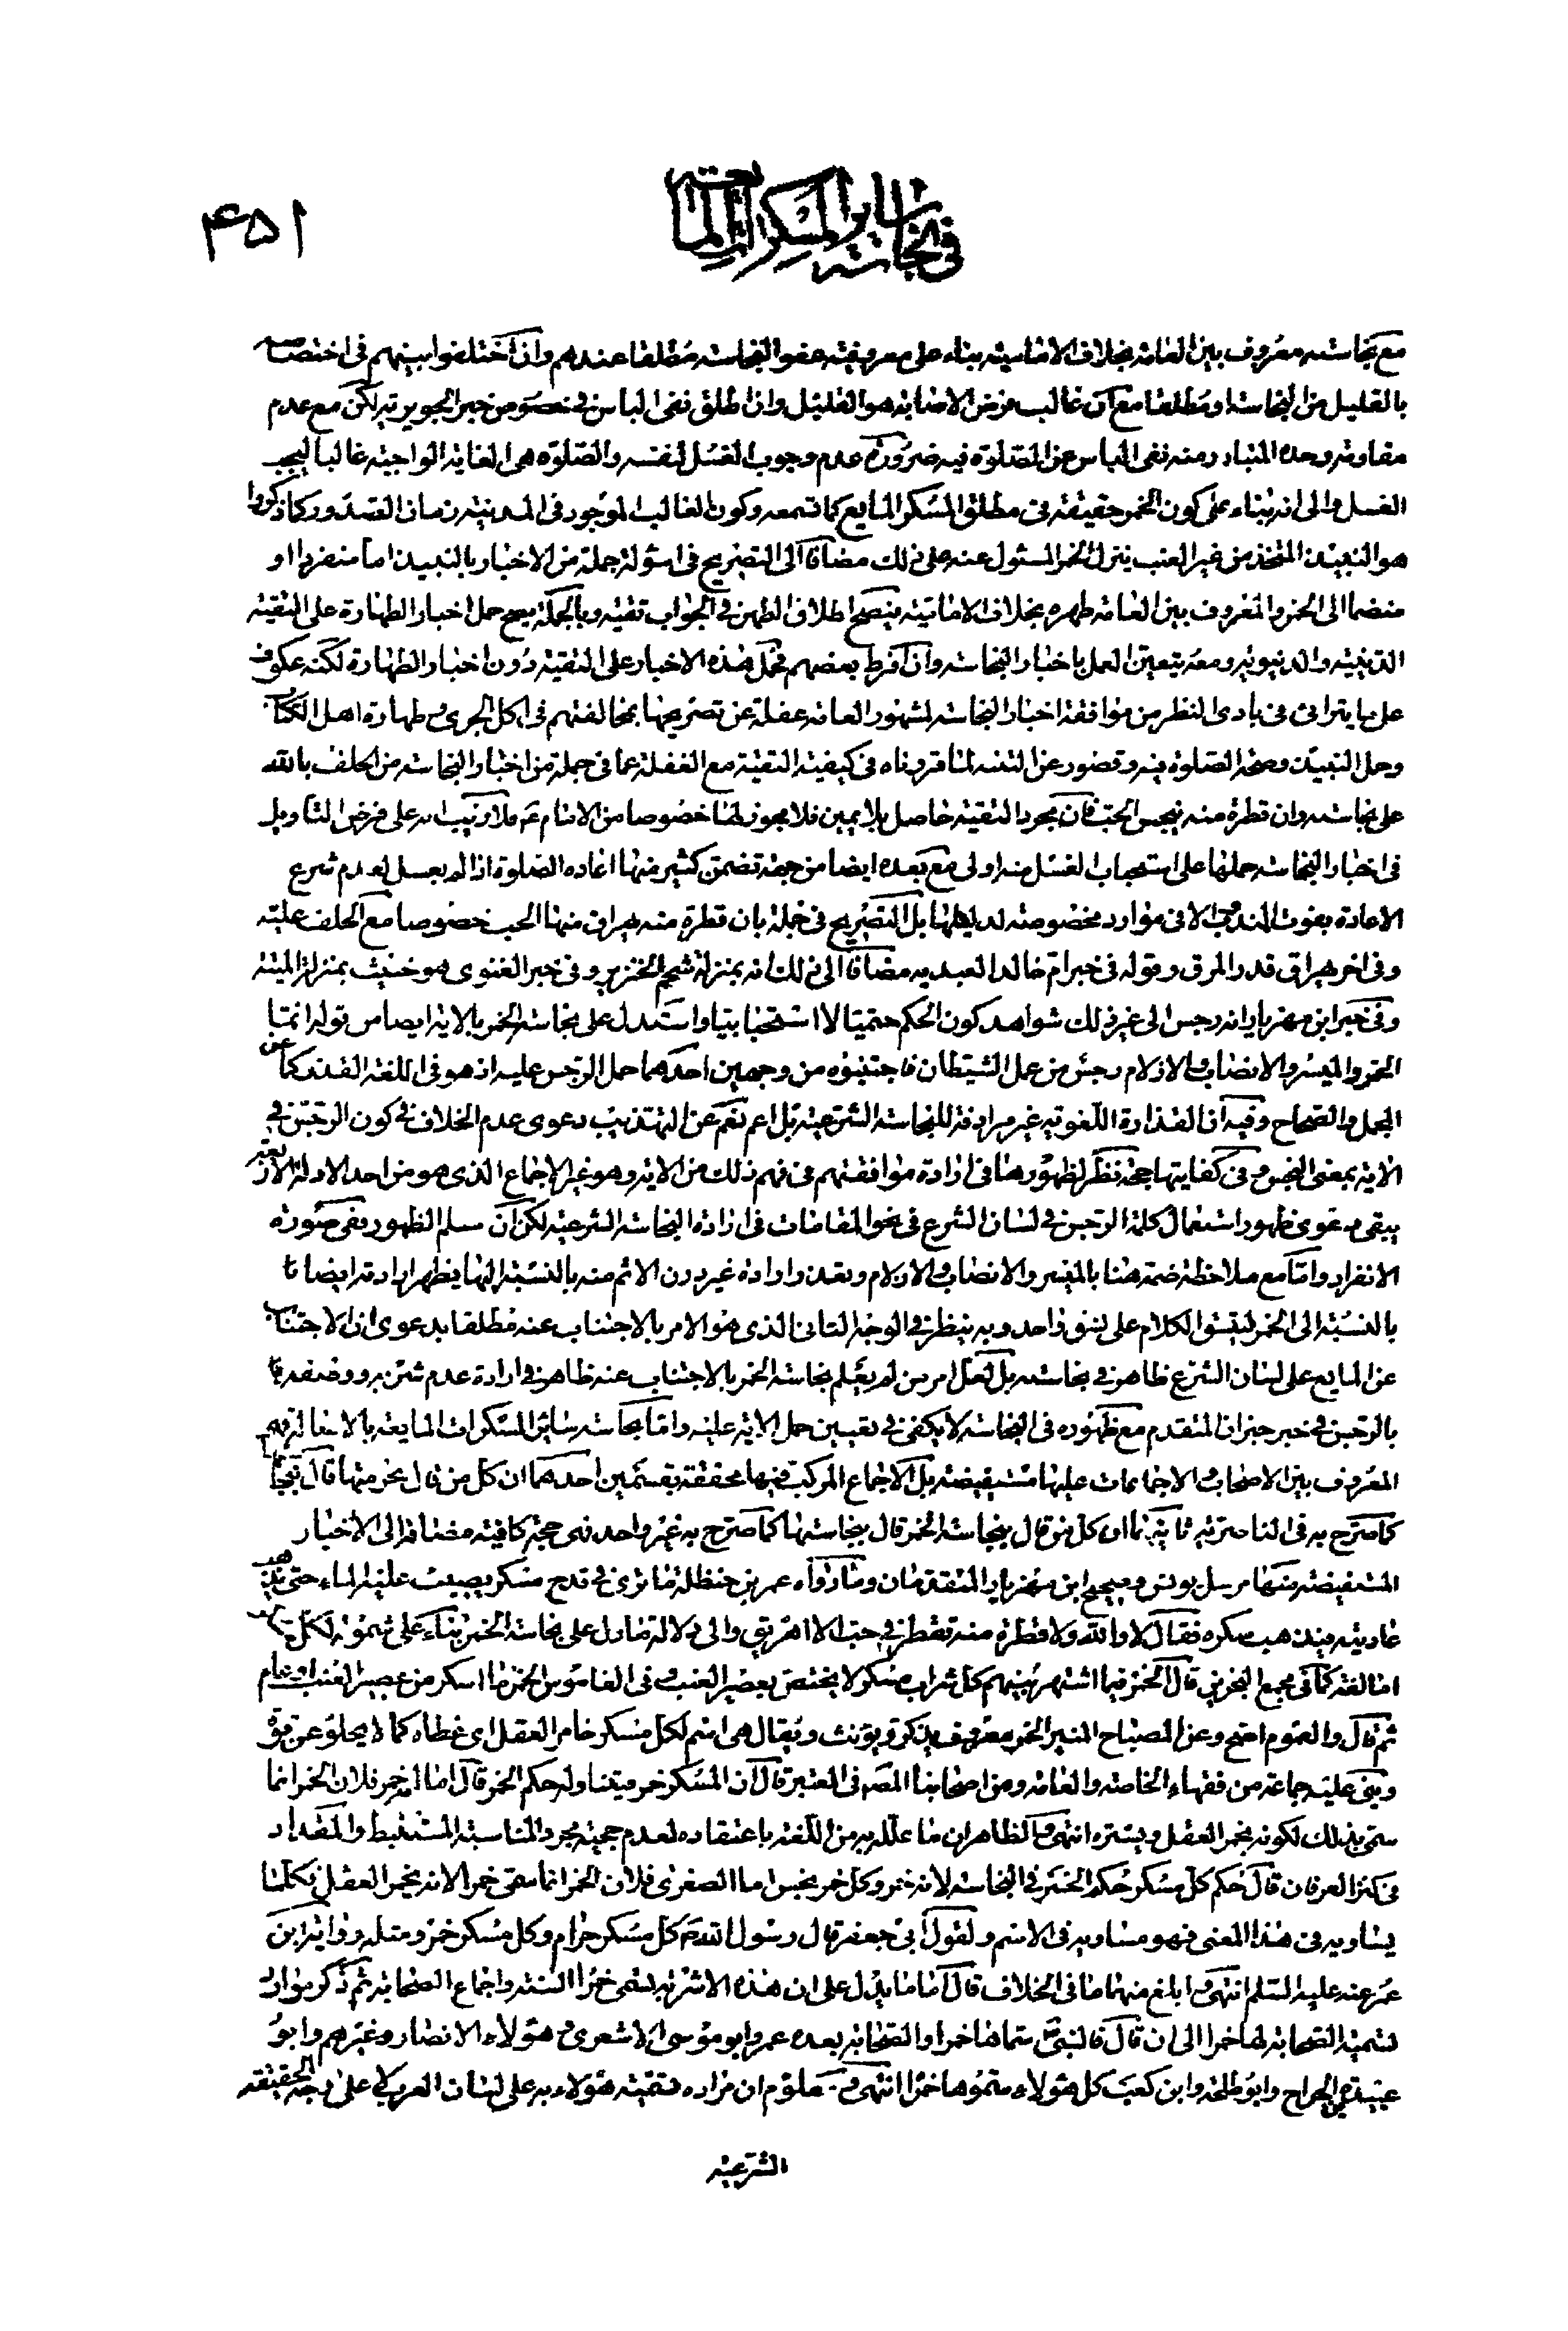 في نجاسة ساير المسكرات المايعة
۴۵۱
مع نجاسته معروف بين العامة بخلاف الامامية بناء على معروفية عفو النجاسة مطلقا عندهم وان اختلفوا بينهم في اختصاصه
بالقليل من النجاسة او مطلقا مع ان غالب فرض الاصابة هو القليل وان اطلق نفى الباس في نصوص من خبر الجويرية لكن مع عدم
مقاومته وحده المتبادر منه نفى الباس عن الصلوة فيه ضرورة عدم وجوب الغسل لنفسه والصلوة هى الغاية الواجبة غالبا ليجب
الغسل والى انه بناء على كون الخمر حقيقة في مطلق المسكر المايع كما تسمعه وكون الغالب الموجود في المدينة زمان الصدور كما ذكروا
هو النبيذ المتخذ من غير العنب ينزل الخمر المسئول عنه على ذلك مضافا الى التصريح في اسولة جملة من الاخبار بالنبيذ اما منفردا او
منضما الى الخمر والمعروف بين العامة طهره بخلاف الامامية فيتضح اطلاق الطهر في الجواب تقية وبالجملة يصح حمل اخبار الطهارة على التقية
الدينية والدنيوية ومعه يتعين العمل باخبار النجاسة وان افرط بعضهم فحمل هذه الاخبار على التقية دون اخبار الطهارة لكنه عكوف
على ما يترائى في بادى النظر من موافقة اخبار النجاسة لمشهور العامة غفلة عن تصريحها بمخالفتهم في اكل الجرى وطهارة اهل الكتاب
وحل النبيذ وصحة الصلوة فيه وقصور عن التنبه لما قررناه في كيفية التقية مع الغفلة عما في جملة من اخبار النجاسة من الحلف بالله
على نجاسته وان قطرة منه ينجس الحب فان مجرد التقية حاصل بلا يمين فلا مجوز لها خصوصا من الامام ع فلا ريب انه على فرض التاويل
في اخبار النجاسة حملها على استحباب الغسل منه اولى مع بعده ايضا من جهة تضمن كثير منها اعادة الصلوة اذا لم يغسل لعدم شرع
الاعادة بفوت المندوب الا في موارد مخصوصة لدليلها بل التصريح في جملة بان قطرة منه يهراق منها الحب خصوصا مع الحلف عليه
وفي اخر يهراق قدر المرق وقوله في خبر ام خالد العبدية مضافا الى ذلك انه بمنزلة شحم الخنزير وفي خبر الغنوى هو خبيث بمنزلة الميتة
وفي خبر ابن مهزيار انه رجس الى غير ذلك شواهد كون الحكم حتميا لا استحبابيا واستدل على نجاسة الخمر بالاية ايضا من قوله انما
الخمر والميسر والانصاب والازلام رجس من عمل الشيطان فاجتنبوه من وجهين احدهما حمل الرجس عليه اذ هو في اللغة القذر كما عن
المجمل والصحاح وفيه ان القذارة اللغوية غير مرادفة للنجاسة الشرعية بل اعم نعم عن التهذيب دعوى عدم الخلاف في كون الرجس في
الاية بمعنى النجس وفي كفايتها حجة نظر لظهورها في ارادة موافقتهم في فهم ذلك من الاية وهو غير الاجماع الذى هو من احد الادلة الاربعة
يبقى دعوى ظهور استعمال كلمة الرجس في لسان الشرع في نحو المقامات في ارادة النجاسة الشرعية لكن ان سلم الظهور ففي صورة
الانفراد واما مع ملاحظة ضمه هنا بالميسر والانصاب والازلام وبعد ارادة غير درن الاثم منه بالنسبة اليها يظهر ارادته ايضا
بالنسبة الى الخمر ليتسق الكلام على نسق واحد وبه ينظر في الوجه الثاني الذى هو الامر بالاجتناب عنه مطلقا بدعوى ان الاجتناب
عن المايع على لسان الشرع ظاهر في نجاسته بل لعل امر من لم يعلم نجاسة الخمر بالاجتناب عنه ظاهر في ارادة عدم شربه ووصفه
بالرجس في خبر خيران المتقدم مع ظهوره في النجاسة لا يكفي في تعيين حمل الاية عليه واما نجاسة ساير المسكرات المايعة بالاصالة فهو
المعروف بين الاصحاب والاجماعات عليها مستفيضة بل الاجماع المركب فيها محققة بقسمين احدهما ان كل من قال بحرمتها قال بنجاستها
كما صرح به في الناصرية ثانيهما ان كل من قال بنجاسة الخمر قال بنجاستها كما صرح به غير واحد فهى حجة كافية مضافة الى الاخبار
المستفيضة منها مرسل يونس وصحيح ابن مهزيار المتقدمان وما رواه عمر بن حنظلة ما ترى في قدح مسكر يصب عليه الماء حتى يذهب
عاديته ويذهب سكره فقال لا والله ولا قطرة منه تقطر في حب الا اهريق والى دلالة ما دل على نجاسة الخمر بناء على شموله لكل مسكر
اما لغة كما في مجمع البحرين قال الخمر فيما اشتهر بينهم كل شراب مسكر لا يختص بعصير العنب وفي القاموس الخمر ما اسكر من عصير العنب او عام
ثم قال والعموم اصح وعن المصباح المنير الخمر معروف يذكر ويؤنث ويقال هى اسم لكل مسكر خامر العقل اى غطاه كما لا يخلو عن قوة
وبنى عليه جماعة من فقهاء الخاصة والعامة ومن اصحابنا المص في المعتبر قال ان المسكر خمر فيتناوله حكم الخمر قال اما انه خمر فلان الخمر انما
سمى بذلك لكونه يخمر العقل ويستره انتهى والظاهر ان ما علله به من اللغة باعتقاده لعدم حجية مجرد المناسبة المستنبط والمقداد
في كنز العرفان قال حكم كل مسكر حكم الخمر في النجاسة لانه خمر وكل خمر نجس اما الصغرى فلان الخمر انما سمى خمرا لانه يخمر العقل فكلما
يساويه في هذا المعنى فهو مساويه في الاسم ولقول ابي جعفر قال رسول الله ص كل مسكر حرام وكل مسكر خمر ومثله رواية ابن
عمر عنه عليه السلم انتهى وابلغ منهما ما في الخلاف قال اما ما يدل على ان هذه الاشربة تسمى خمرا السنة واجماع الصحابة ثم ذكر موارد
تسمية الصحابة لها خمرا الى ان قال فالنبي ص سماها خمرا والصحابة بعده عمر وابو موسى الاشعرى وهؤلاء الانصار وغيرهم وابو
عبيدة بن الجراح وابو طلحة وابن كعب كل هؤلاء سموها خمرا انتهى ومعلوم ان مراده تسمية هؤلاء به على لسان العرب لا على وجه الحقيقة
الشرعية